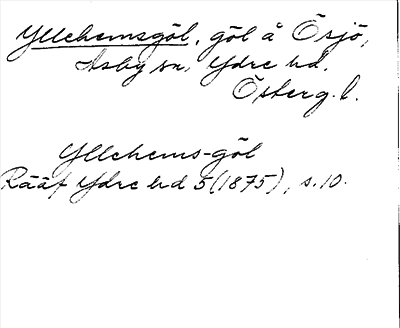 Yllehemsgöl, göl å Örsjö,
Asby sn, Ydre hd.
Österg. l.
Yllehems-göl
Rääf Ydre hd 5 (1875), s. 10.